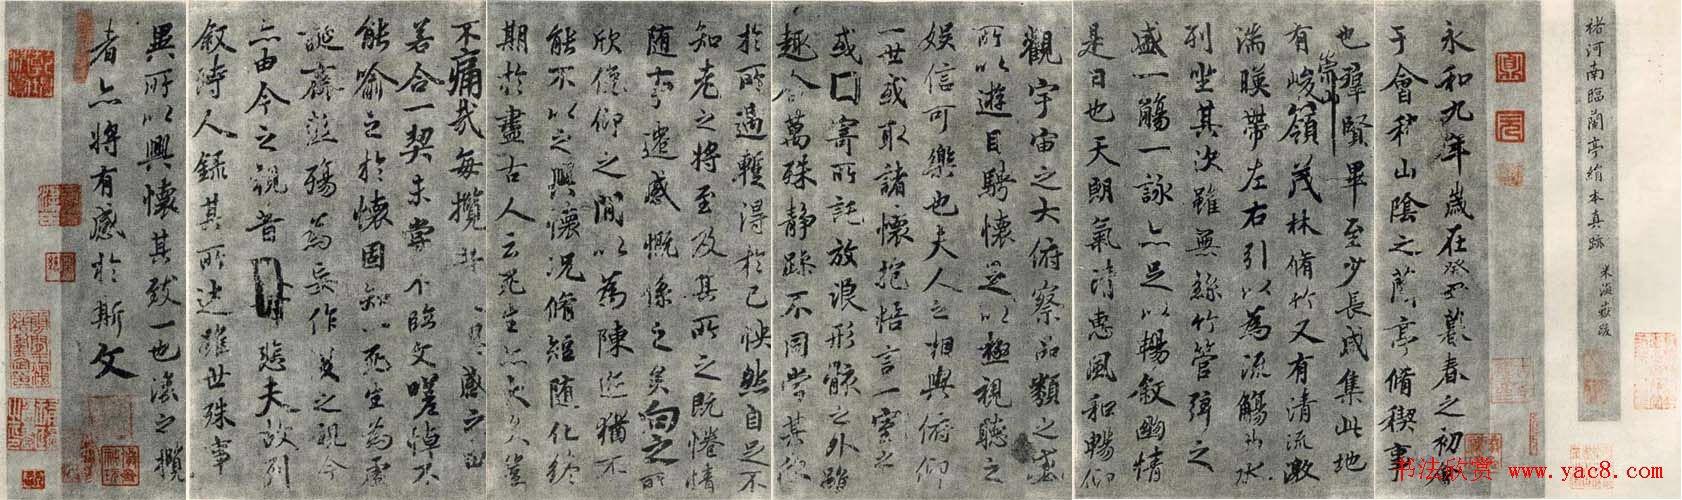 褚河南臨蘭亭絹本真跡
米海嶽跋
永和九年歲在癸丑暮春之初會
于會稽山陰之蘭亭脩稧事
也羣賢畢至少長咸集此地
有崇山峻領茂林脩竹又有清流激
湍暎帶左右引以為流觴曲水
列坐其次雖無絲竹管弦之
盛一觴一詠亦足以暢敘幽情
是日也天朗氣清惠風和暢仰
觀宇宙之大俯察品類之盛
所以遊目騁懷足以極視聽之
娛信可樂也夫人之相與俯仰
一世或取諸懷抱悟言一室之
或寄所託放浪形骸之外雖
趣舍萬殊靜躁不同當其欣
於所遇暫得於己怏然自足不
知老之將至及其所之既惓情
随事遷感慨係之矣向之所
欣俛仰之閒以為陳迹猶不
能不以之興懷況脩短随化終
期於盡古人云死生亦大矣豈
不痛哉每攬昔人興感之由
若合一契未嘗不臨文嗟悼不
能喻之於懷固知一死生為虛
誕齊彭殤為妄作後之視今
亦由今之視昔悲夫故列
敘時人錄其所述雖世殊事
異所以興懷其致一也後之攬
者亦將有感於斯文
书法欣赏 www.yac8.com